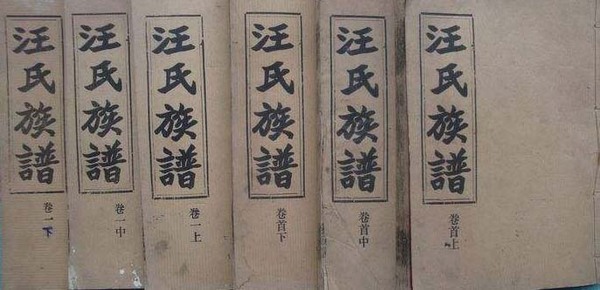 汪氏族譜
卷首上
汪氏族譜
卷首中
汪氏族譜
卷首下
汪氏族譜
卷一上
汪氏族譜
卷一中
汪氏族譜
卷一下